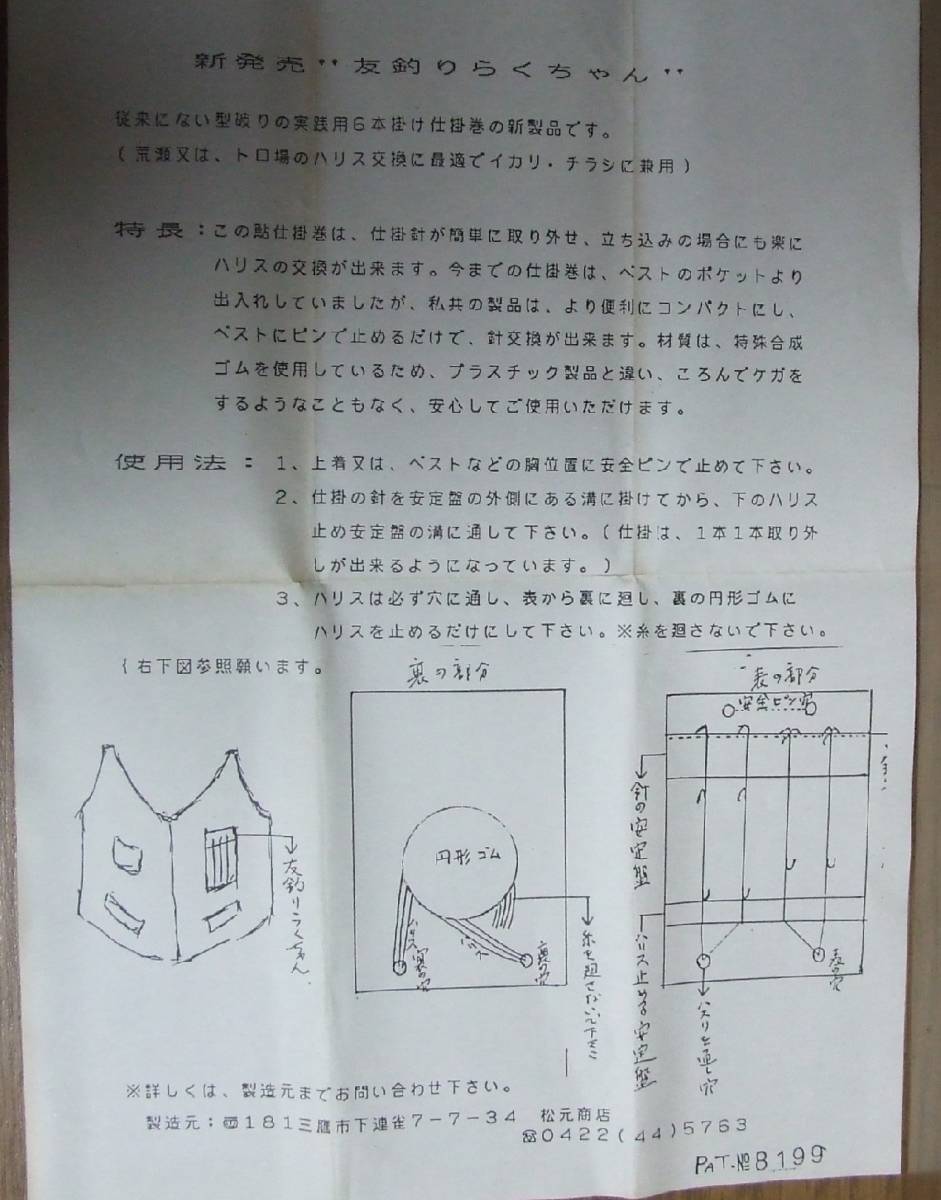 新発売"友釣りらくちゃん"
従来にない型破りの実践用6本掛け仕掛巻の新製品です。
(荒瀬又は、トロ場のハリス交換に最適でイカリ・チラシに兼用)
特長:この鮎仕掛巻は、仕掛針が簡単に取り外せ、立ち込みの場合にも楽に
ハリスの交換が出来ます。今までの仕掛巻は、ベストのポケットより
出入れしていましたが、私共の製品は、より便利にコンパクトにし、
ベストにピンで止めるだけで、針交換が出来ます。材質は、特殊合成
ゴムを使用しているため、プラスチック製品と違い、ころんでケガを
するようなこともなく、安心してご使用いただけます。
使用法:1、上着又は、ベストなどの胸位置に安全ピンで止めて下さい。
2、仕掛の針を安定盤の外側にある溝に掛けてから、下のハリス
止め安定盤の溝に通して下さい。(仕掛は、1本1本取り外
しが出来るようになっています。)
3、ハリスは必ず穴に通し、表から裏に廻し、裏の円形ゴムに
ハリスを止めるだけにして下さい。※糸を廻さないで下さい。
{右下図参照願います。
裏の部分
表の部分
安全ピン穴
針の安定盤
円形ゴム
友釣りらくちゃん
ハリス
裏の穴
裏の穴
糸を廻さないで下さい
ハリス止める安定盤
表の穴
ハスリを通し穴
※詳しくは、製造元までお問い合わせ下さい。
製造元:〠181三鷹市下連雀7-7-34 松元商店
☎0422(44)5763
PAT-№8199